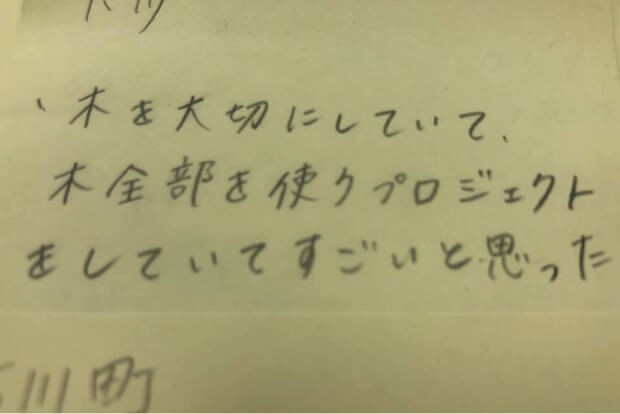 、木を大切にしていて、
木全部を使うプロジェクト
をしていてすごいと思った
川町